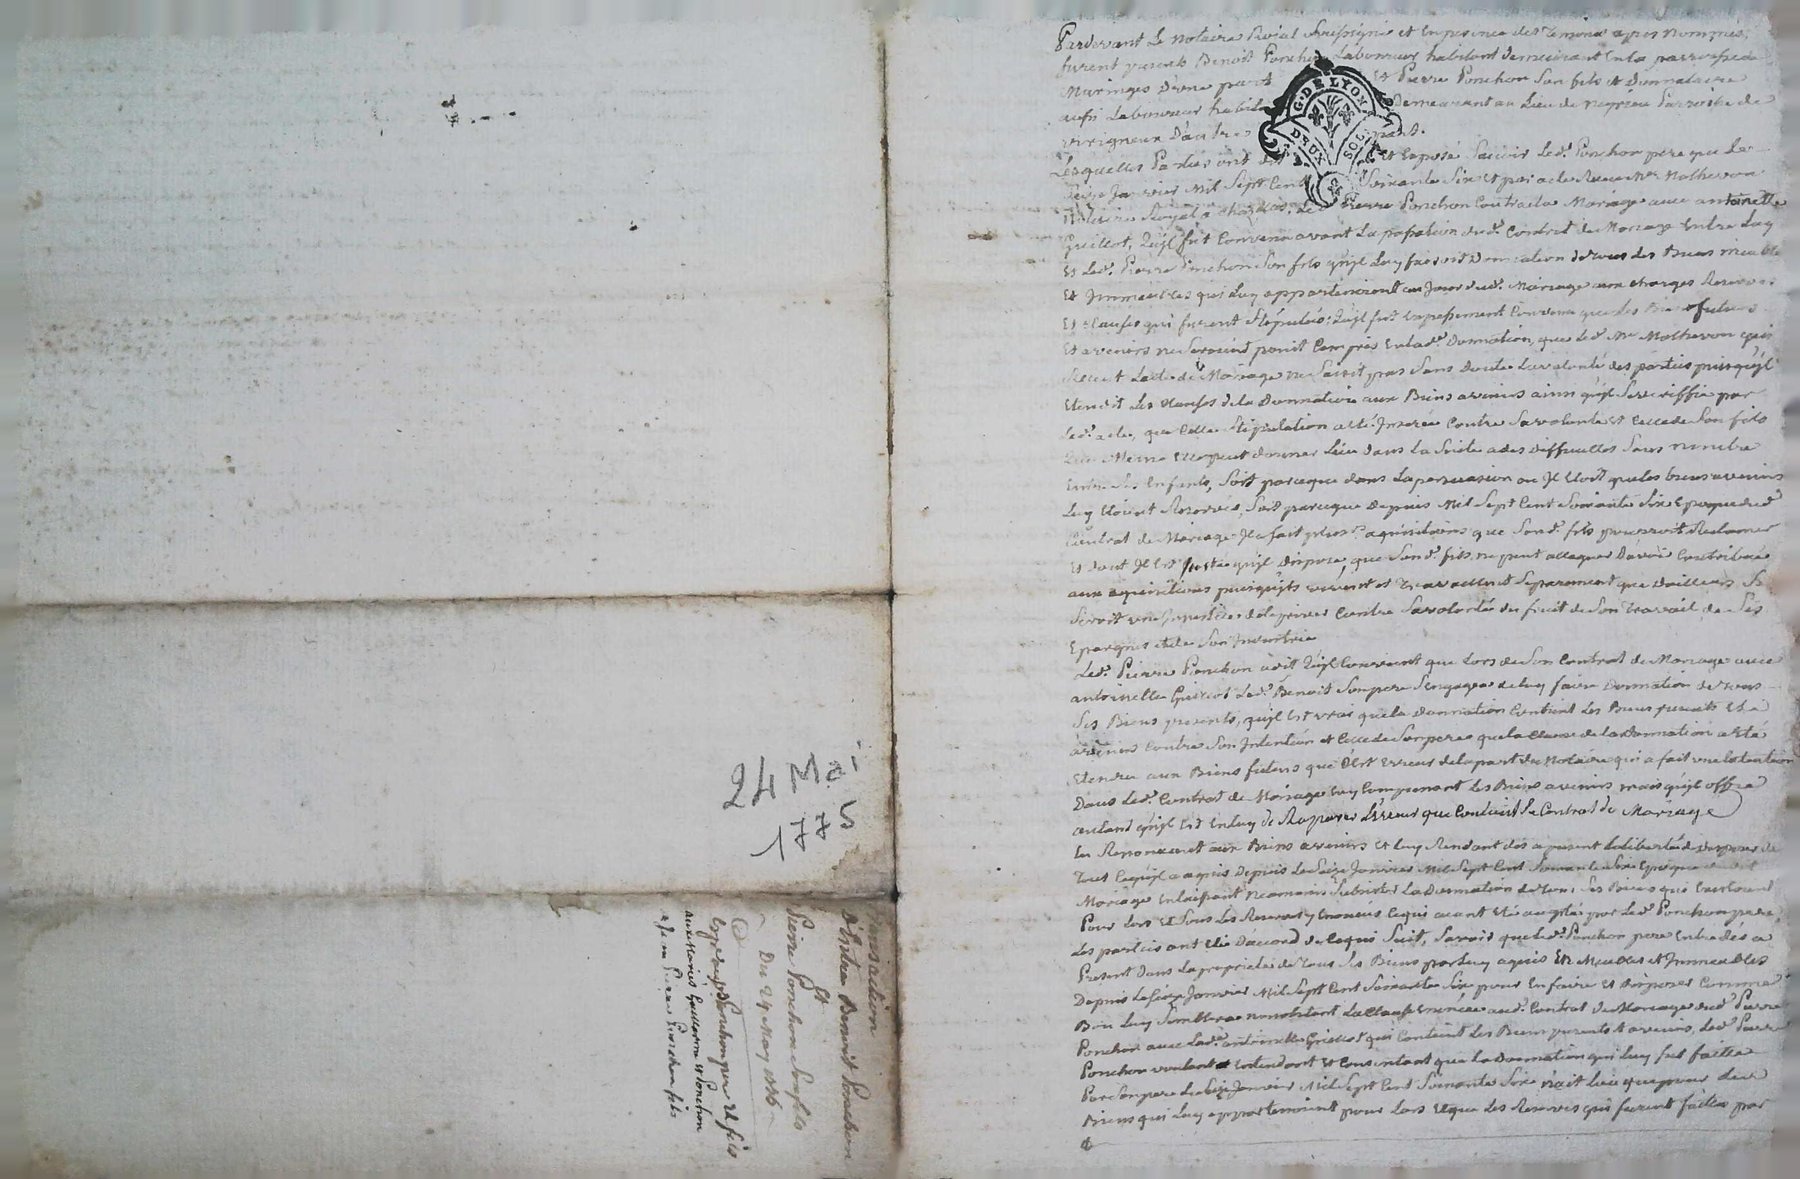 24 Mai
1775
Transaction
D'Entre Benoit Ponchon
Et
Pierre Ponchon Son fils
Du 24 May 1775
Ponchon pere et fils
Pardevant Le Notaire Roial Soussigné et En presence des Temoins apres Nommés,
furent presents Benoit Ponchon Laboureur habitant demeurant En la parroisse de
Maringes D'une part Et Pierre Ponchon Son fils et Donnataire
aussi Laboureur demeurant au Lieu de Parroisse de
virigneux D'autre part.
G. DE LYON
DEUX SOL
Lesquelles Parties ont Et Exposé Savoir Led. Ponchon pere que Le
Seize Janvier Mil Sept Cent Soixante Six Et par acte Receu Me Mathevon
Notaire Royal a Led. Pierre Ponchon Contracta Mariage avec antoinette
Guillot, Qu'jl fut Convenu avant La passation dud. Contrat de Mariage Entre Luy
Et Led. Pierre Ponchon Son fils qu'jl Luy faisoit Donnation de tous Les Biens meubles
Et Jmmeubles qui Luy appartenoient au Jour dud. Mariage aux charges Reserves
Et Clauses qui furent Stipulées; Qu'jl fut Expressement Convenu que Les Biens futurs
Et avenirs ne Seroient point Compris En lad. Donnation, que led. Me Mathevon qui
Receut L'acte de Mariage ne Suivit pas Sans Doute La volonté des parties puisqu'jl
Etendit Les Clauses de la Donnation aux Biens avenirs ainsi qu'jl Se veriffie par
led. acte, que Cette Stipulation a été Jnserée Contre Sa volonté Et Celle de Son fils
Elle peut donner Lieu dans La Suite a des Difficultes Sans nombre
Entre Ses Enfants, Soit parceque dans La persuasion ou Jl Etoit que les biens avenirs
Luy Etoient Reservés, Soit parceque Depuis Mil Sept Cent Soixante Six Epoque dud.
Contrat de Mariage Jl a fait aquisitions que Son d. fils pourroit Reclamer
Et dont Jl Est Juste qu'jl Dispose, que Son d. fils ne peut alleguer D'avoir Contribué
aux aquisitions puisqu'jls vivent et travaillent Separement que D'ailleurs Ce
Seroit une Jnjustice de le priver Contre Sa volonté du fruit de Son travail de Ses
Epargnes et de Son Jndustrie
Led. Pierre Ponchon a dit Qu'jl Convient que Lors de Son Contrat de Mariage avec
antoinette Guillot Led. Benoit Son pere S'engagea de luy faire Donnation de tous
Ses Biens presents, qu'jl Est vrai que la Donnation Contient Les Biens presents Et a
avenirs Contre Son Jntention et Celle de Son pere que la Clause de la Donnation a Eté
Etendue aux Biens futurs que C'est Erreur de la part du Notaire qui a fait une
Dans Led. Contrat de Mariage En y Comprenant Les Biens avenirs mais qu'jl offre
autant qu'jl Est En luy de Reparer L'erreur que Contient Le Contrat de Mariage
En Renonceant aux Biens avenirs Et luy Rendant dès a present la liberté de disposer de
Tout Ce qu'jl a aquis Depuis Le Seize Janvier Mil Sept Cent Soixante Six Epoque
Mariage En laissant Neamoins Subsister La Donnation de tous Ses Biens qui Existoient
Pour lors Et Sous Les Reserves y Enoncées Ce qui ayant Eté accepté par Led. Ponchon pere,
Les parties ont Eté D'accord de Ce qui Suit, Savoir que led. Ponchon pere Entre dès a
Present Dans La propriete de Tous Ses Biens par luy aquis En Meubles et Jmmeubles
Depuis Le Seize Janvier Mil Sept Cent Soixante Six pour En faire Et Disposer Comme
Bon Luy Semblera nonobstant La Clause Enoncée aud. Contrat de Mariage dud. Pierre
Ponchon avec Lad. antoinette Guillot qui Contient Les Biens presents Et avenirs, Led. Pierre
Ponchon voulant Entendant Et Consentant que la Donnation qui Luy fut faitte
Par Son pere Le Seize Janvier Mil Sept Cent Soixante Six n'ait lieu que pour Les
Biens qui Luy appartenoient pour Lors Et que Les Reserves qui furent faites par